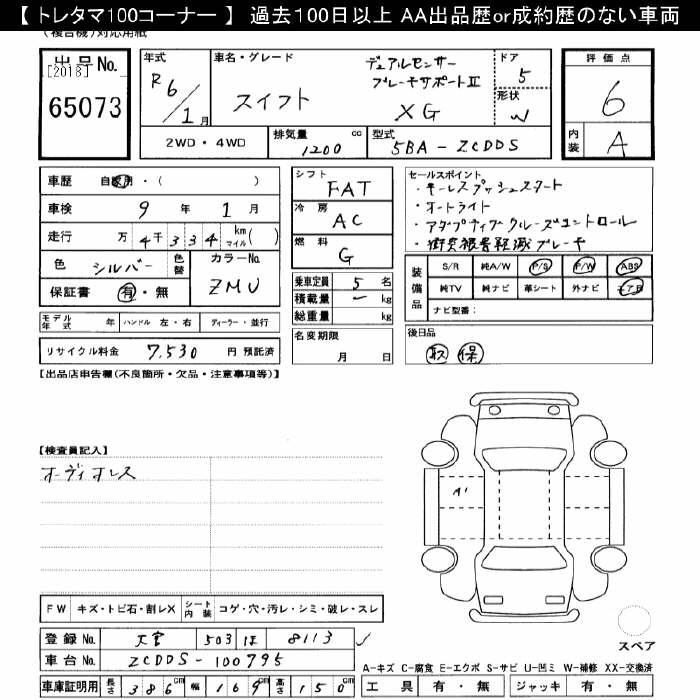 【 トレタマ100コーナー 】 過去100日以上 AA出品歴or成約歴のない車両
(複合機)対応用紙
出品No.
[2018]
65073
年式 R6/1月
車名・グレード スイフト
デュアルセンサー
ブレーキサポートⅡ
XG
ドア 5
形状 W
評価点 6
内装 A
2WD・4WD
排気量 1200 cc
型式 5BA-ZCDDS
車歴 自家用・( )
車検 9年 1月
走行 万 4千 3 3 4 km マイル( )
色 シルバー 色替
カラーNo. ZMU
保証書 有・無
モデル年式 年 ハンドル 左・右 ディーラー・並行
リサイクル料金 7,530 円 預託済
シフト FAT
冷房 AC
燃料 G
乗車定員 5 名
積載量 ー kg
総重量 kg
名変期限
月 日
セールスポイント
・キーレスプッシュスタート
・オートライト
・アダプティブクルーズコントロール
・衝突被害軽減ブレーキ
装備品
S/R 純A/W P/S P/W ABS
純TV 純ナビ 革シート 外ナビ エアB
ナビ型番:
後日品
取 保
【出品店申告欄(不良箇所・欠品・注意事項等)】
【検査員記入】
オーディオレス
A1
FW キズ・トビ石・割レX シート内装 コゲ・穴・汚レ・シミ・破レ・スレ
登録No. 大宮 503 ほ 8113
車台No. ZCDDS-100795
車庫証明用 長さ 386cm 幅 169cm 高さ 150cm
スペア
A-キズ C-腐食 E-エクボ S-サビ U-凹ミ W-補修 XX-交換済
工具 有・無 ジャッキ 有・無